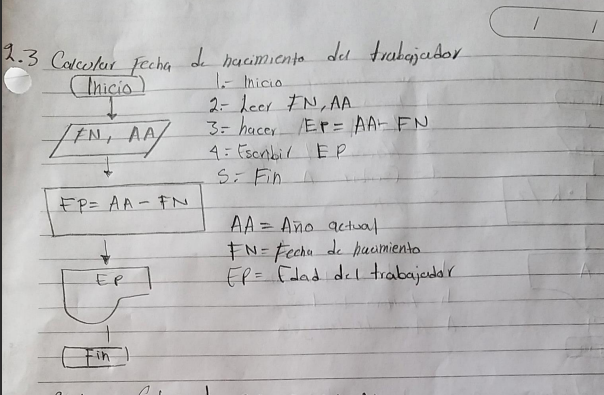 2.3 Calcular Fecha de nacimiento del trabajador
Inicio
FN, AA
EP= AA - FN
EP
Fin
1.- Inicio
2- Leer FN, AA
3= hacer EP= AA- FN
4= Escribir EP
5= Fin
AA = Año actual
FN= Fecha de nacimiento
EP= Edad del trabajador